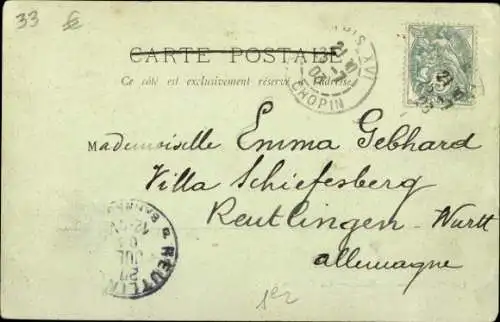 33
CARTE POSTALE
Ce côté est exclusivement réservé à l'adresse
XVI
CHOPIN
21
03
Mademoiselle Emma Gebhard
Villa Schiefesberg
Reutlingen - Württ
Allemagne
REUTLIN
JUL